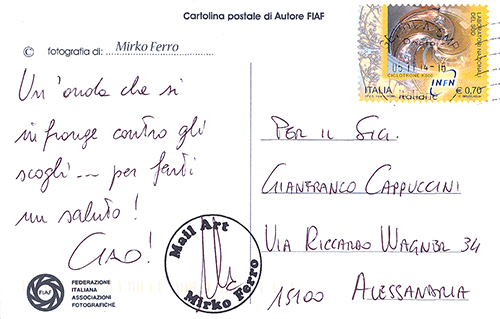 Cartolina postale di Autore FIAF
© fotografia di: Mirko Ferro
Un'onda che si
infrange contro gli
scogli... per farti
un saluto!
CIAO!
FIAF
FEDERAZIONE
ITALIANA
ASSOCIAZIONI
FOTOGRAFICHE
Mail Art
Mirko Ferro
LABORATORI NAZIONALI
DEL SUD
05.11.14-16
CICLOTRONE K800
INFN
ITALIA € 0,70
PER IL SIG.
GIANFRANCO CAPPUCCINI
VIA RICCARDO WAGNER 34
15100 ALESSANDRIA